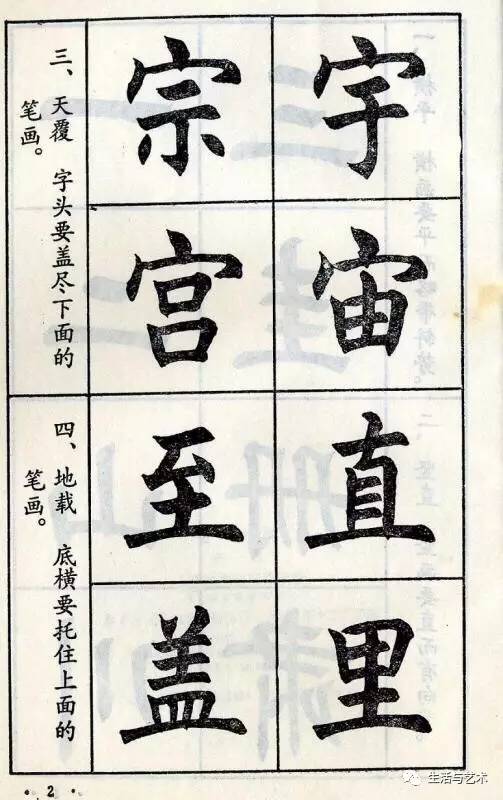 三、天覆　字头要盖尽下面的
笔画。
宇
宙
宗
宫
四、地载　底横要托住上面的
笔画。
直
里
至
盖
·2·
生活与艺术